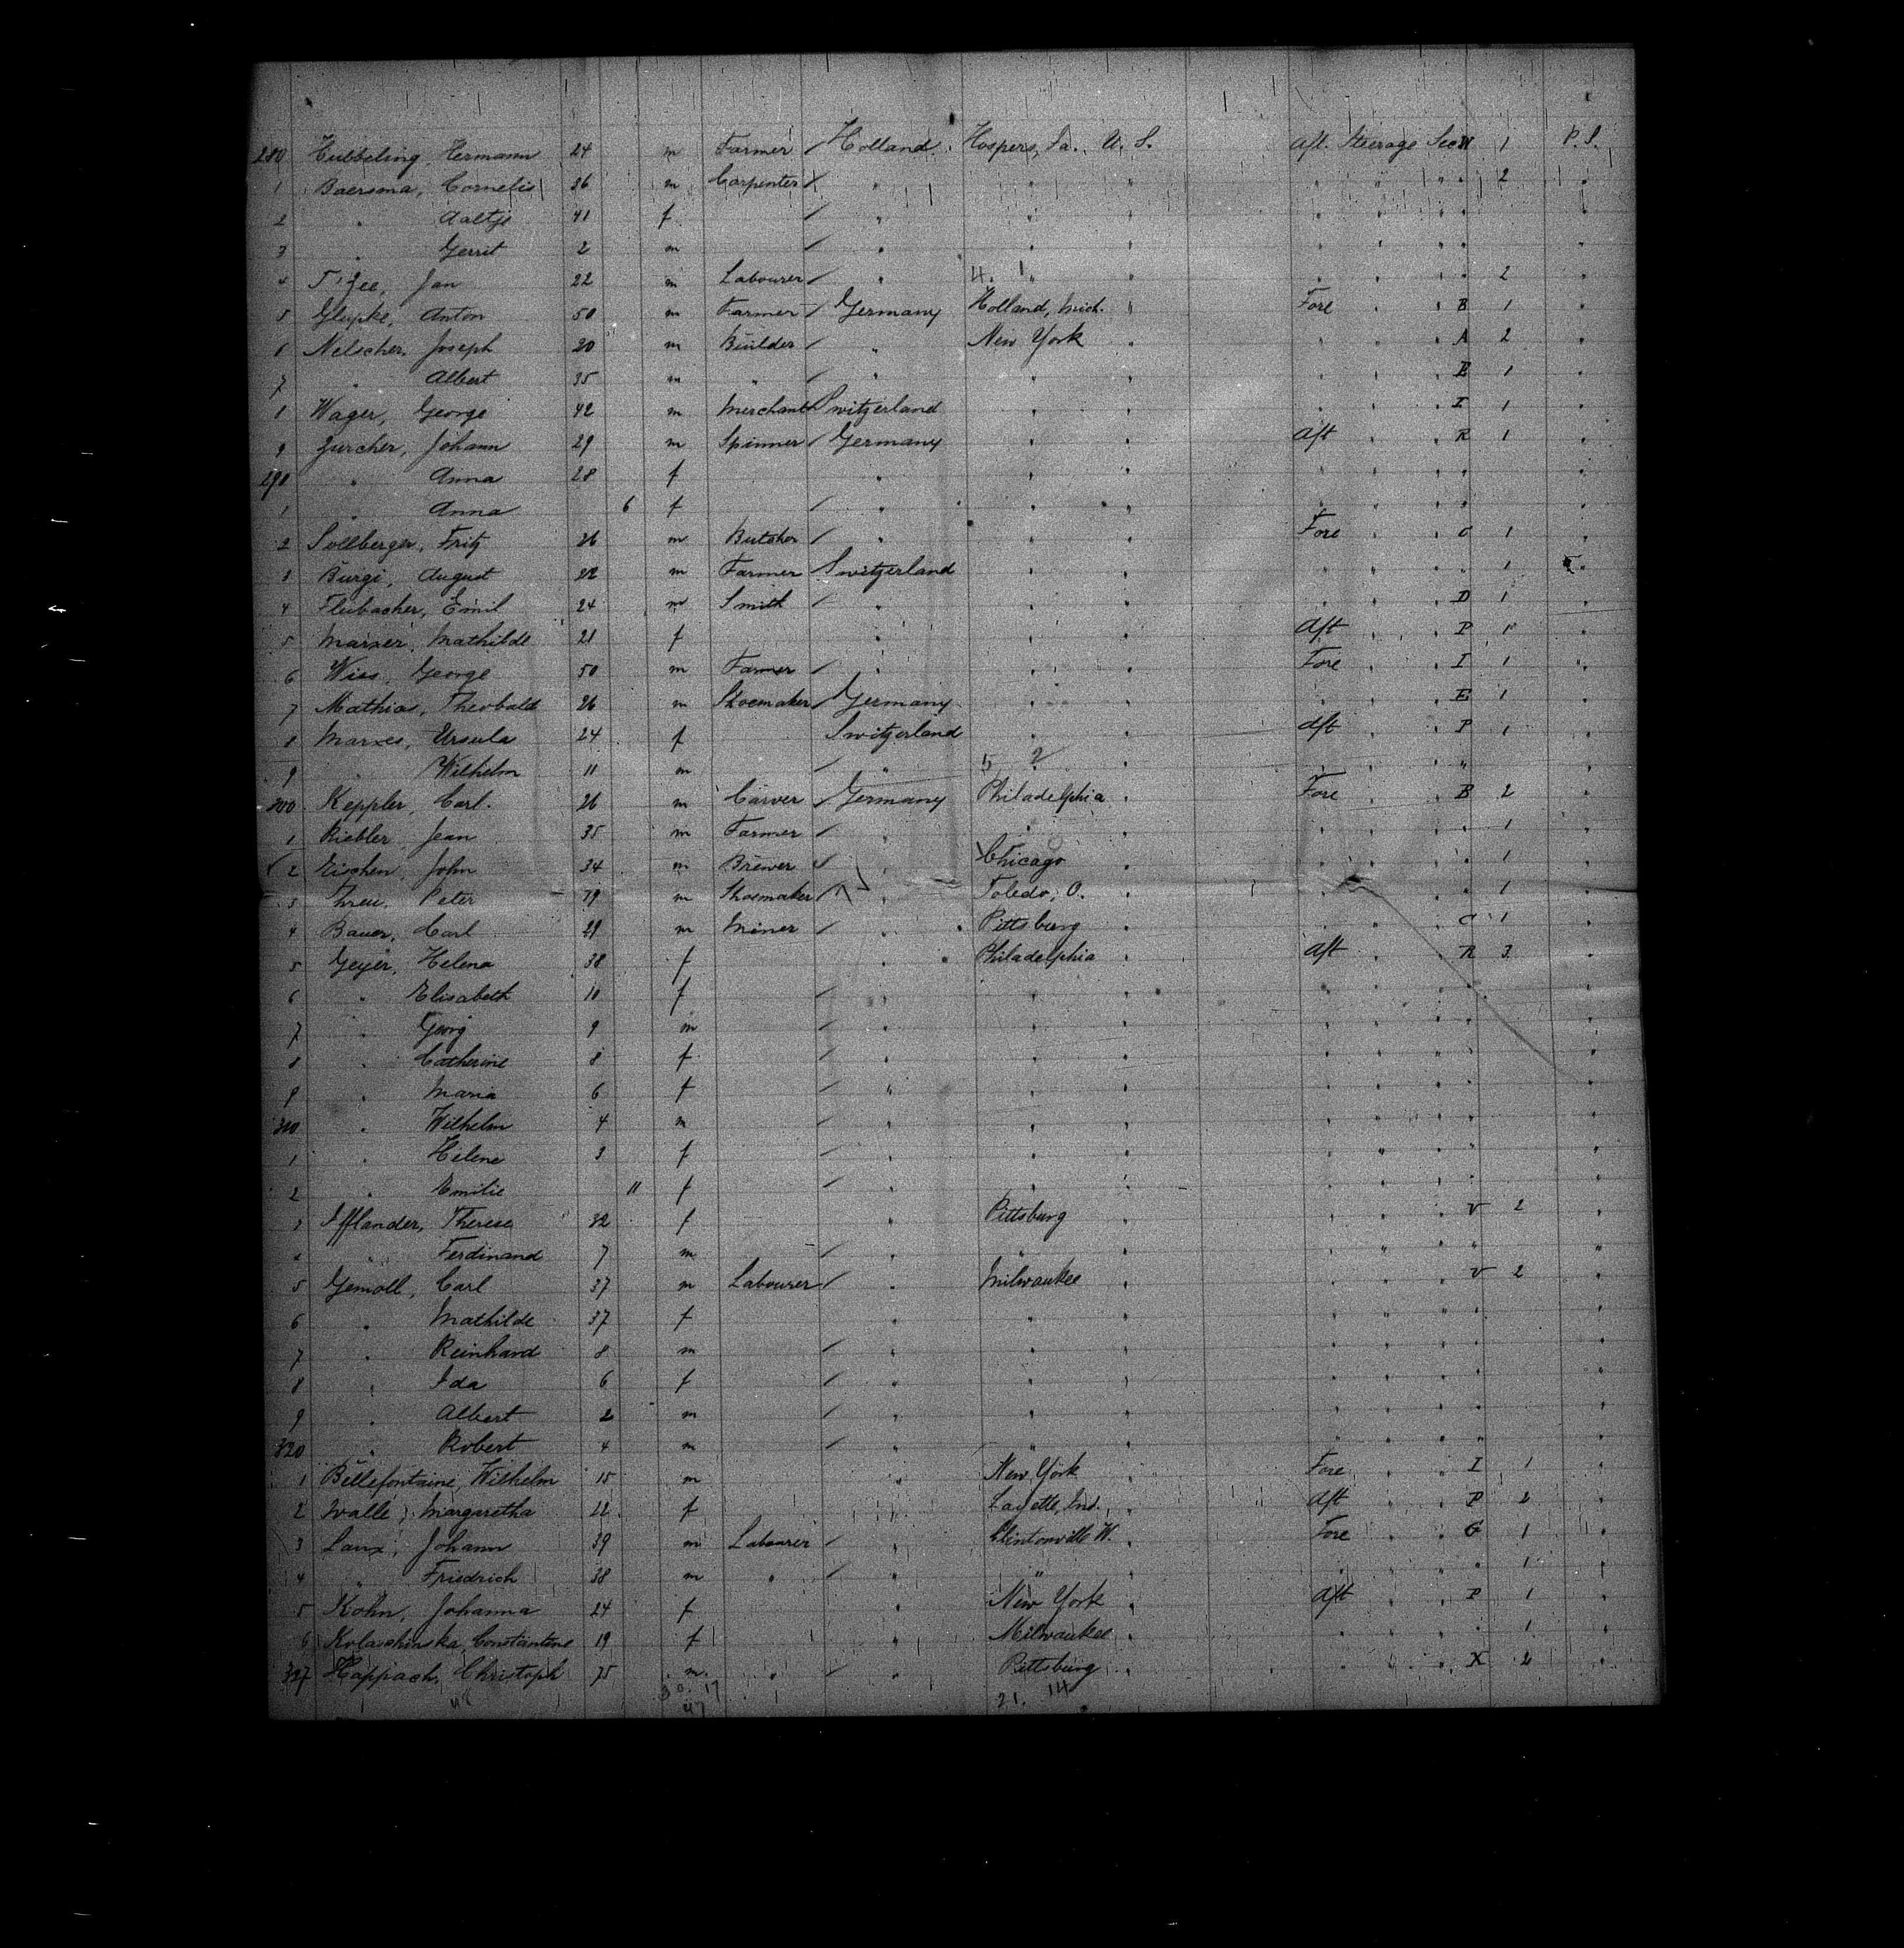 280 Hubbeling, Hermann 24 m Farmer / Holland. Hospers, Ia. U. S. Aft. Steerage Sec. 1 P. S.
1 Boersma, Cornelis 36 m Carpenter / " " " " " " 2 "
2 " Aaltje 41 f / " " " " " " "
3 " Gerrit 2 m / " " " " " " "
4 T'Zee, Jan 22 m Labourer / " 4. 1 " " " " 2 "
5 Glupke, Anton 50 m Farmer / Germany Holland, Mich. " Fore " " B 1 "
6 Nelscher, Joseph 20 m Builder / " New York " " " " A 2 "
7 " Albert 35 m " / " " " " " " E 1 "
1 Wager, George 42 m Merchant Switzerland " " " " " I 1 "
9 Zurcher, Johann 29 m Spinner / Germany " " Aft " " R 1 "
290 " Anna 28 f " " " " " " "
1 " Anna 6 f / " " " " " " "
2 Sollberger, Fritz 26 m Butcher / " " " Fore " " C 1 "
3 Burgi, August 22 m Farmer Switzerland " " " " " " 1 "
4 Flubacher, Emil 24 m Smith / " " " " " D 1 "
5 Marxer, Mathilde 21 f " " " Aft " " P 1 "
6 Wiss, George 50 m Farmer / " " " Fore " " I 1 "
7 Mathias, Theobald 26 m Shoemaker / Germany " " " " " E 1 "
8 Marxes, Ursula 24 f Switzerland " " Aft " " P 1 "
9 " Wilhelm 11 m / " 5 2 " " " " " "
300 Keppler, Carl. 26 m Carver / Germany Philadelphia " Fore " " B 2 "
1 Riebler, Jean 35 m Farmer / " " " " " " " 1 "
2 Eischen, John 34 m Brewer / " Chicago " " " " " 1 "
3 Threu, Peter 79 m Shoemaker / " Toledo, O. " " " " 1 "
4 Bauer, Carl 29 m Miner / " Pittsburg " " " " C 1 "
5 Geyer, Helena 38 f " Philadelphia " Aft " " R 3 "
6 " Elisabeth 10 f / " " " " " " "
7 " Georg 9 m / " " " " " " "
8 " Catherine 8 f / " " " " " " "
9 " Maria 6 f / " " " " " " "
310 " Wilhelm 4 m / " " " " " " "
1 " Helene 3 f / " " " " " " "
2 " Emilie 11 f / " " " " " " "
3 Ifflander, Therese 32 f " Pittsburg " " " " V 2 "
4 " Ferdinand 7 m / " " " " " " " "
5 Gemoll, Carl 37 m Labourer / " Milwaukee " " " " V 2 "
6 " Mathilde 37 f " " " " " " " "
7 " Reinhard 8 m / " " " " " " " "
8 " Ida 6 f / " " " " " " " "
9 " Albert 2 m / " " " " " " " "
320 " Robert 4 m / " " " " " " " "
1 Bellefontaine, Wilhelm 15 m " New York " Fore " " I 1 "
2 Walle, Margaretha 22 f " Layette, Ind. " Aft " " P 2 "
3 Laux, Johann 39 m Labourer / " Clintonville W. " Fore " " G 1 "
4 " Friedrich 38 m " / " " " " " " 1 "
5 Kohn, Johanna 24 f " New York " Aft " " P 1 "
6 Kolaschinska, Constantine 19 f " Milwaukee " " " " " 1 "
327 Happach, Christoph 75 m " / " Pittsburg " " " " X 2 "
48 30. 17 21. 14
47